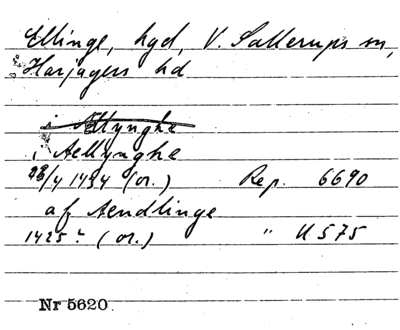 Ellinge, hgd, V. Sallerups sn,
Harjagers hd
i Ællynghe
i Aellynghe
28/4 1434 (or.) Rep. 6690
af Aendlinge
1425? (or.) " U 575
Nr 5620